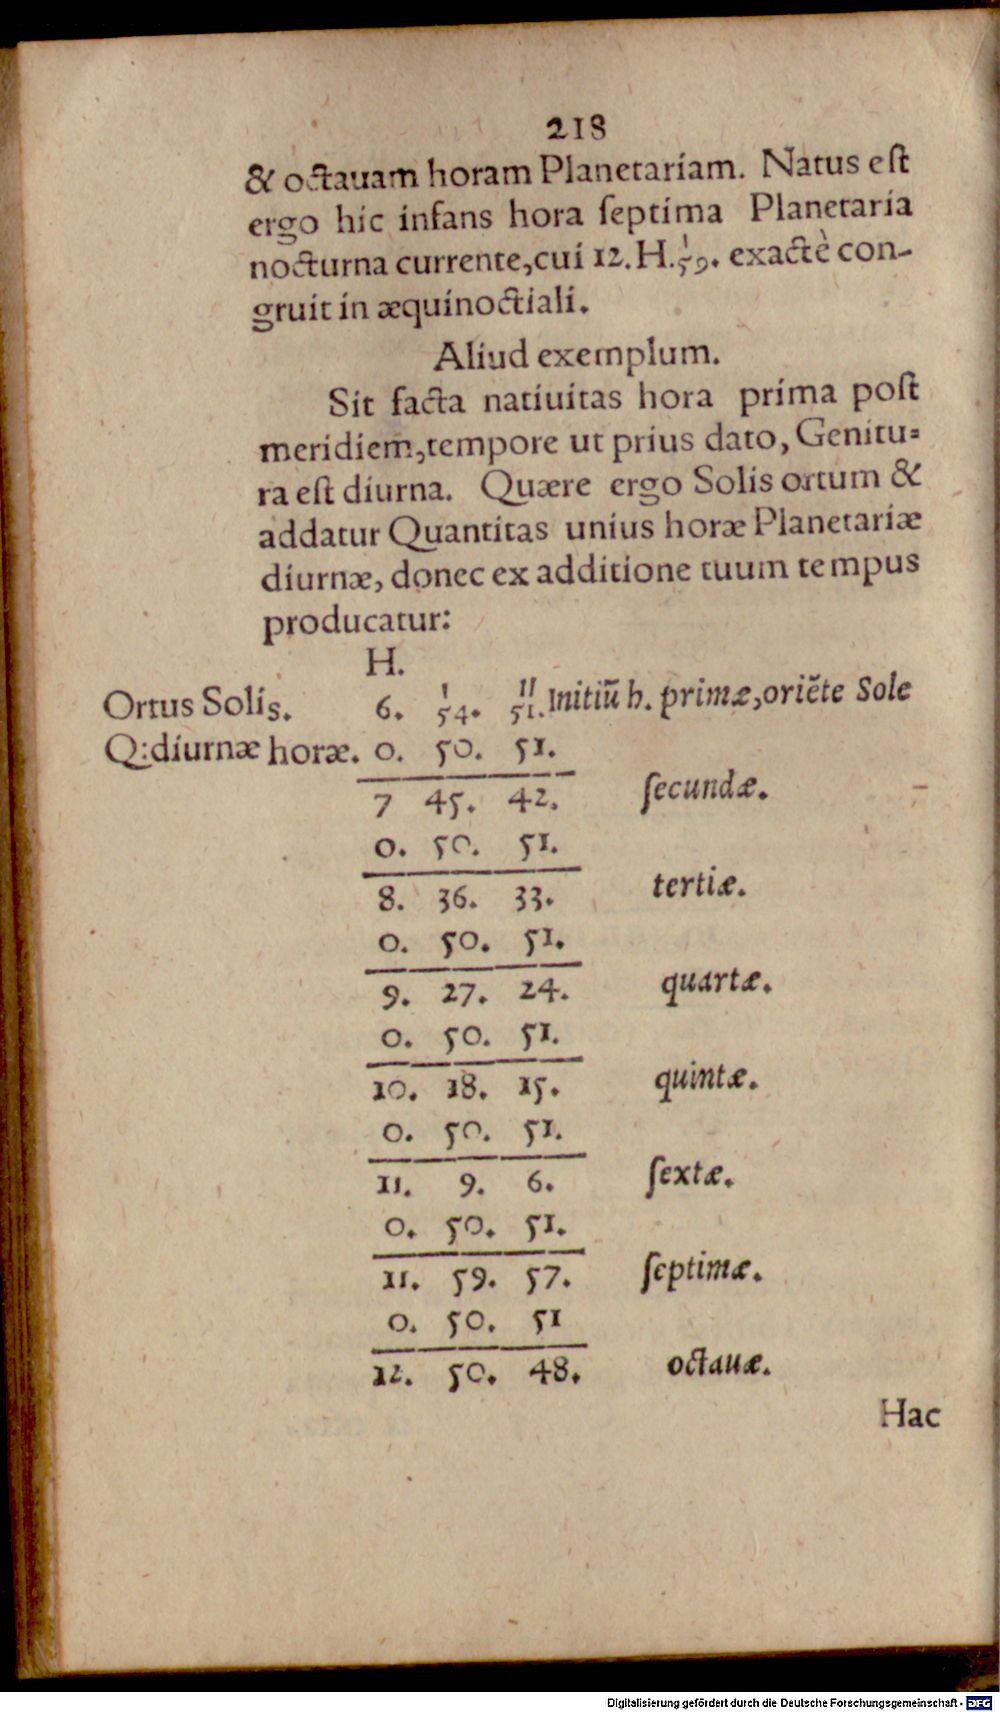 218
& octauam horam Planetariam. Natus eſt
ergo hic infans hora ſeptima Planetaria
nocturna currente, cui 12. H. 59.' exactè con-
gruit in æquinoctiali.
Aliud exemplum.
Sit facta natiuitas hora prima poſt
meridiem, tempore ut prius dato, Genitu=
ra eſt diurna. Quære ergo Solis ortum &
addatur Quantitas unius horæ Planetariæ
diurnæ, donec ex additione tuum tempus
producatur:
H. ' ''
Ortus Solis. 6. 54. 51. Initiũ h. primæ, oriẽte Sole
Q: diurnæ horæ. 0. 50. 51.
7 45. 42. ſecundæ.
0. 50. 51.
8. 36. 33. tertiæ.
0. 50. 51.
9. 27. 24. quartæ.
0. 50. 51.
10. 18. 15. quintæ.
0. 50. 51.
11. 9. 6. ſextæ.
0. 50. 51.
11. 59. 57. ſeptimæ.
0. 50. 51
12. 50. 48. octauæ.
Hac
Digitalisierung gefördert durch die Deutsche Forschungsgemeinschaft - DFG